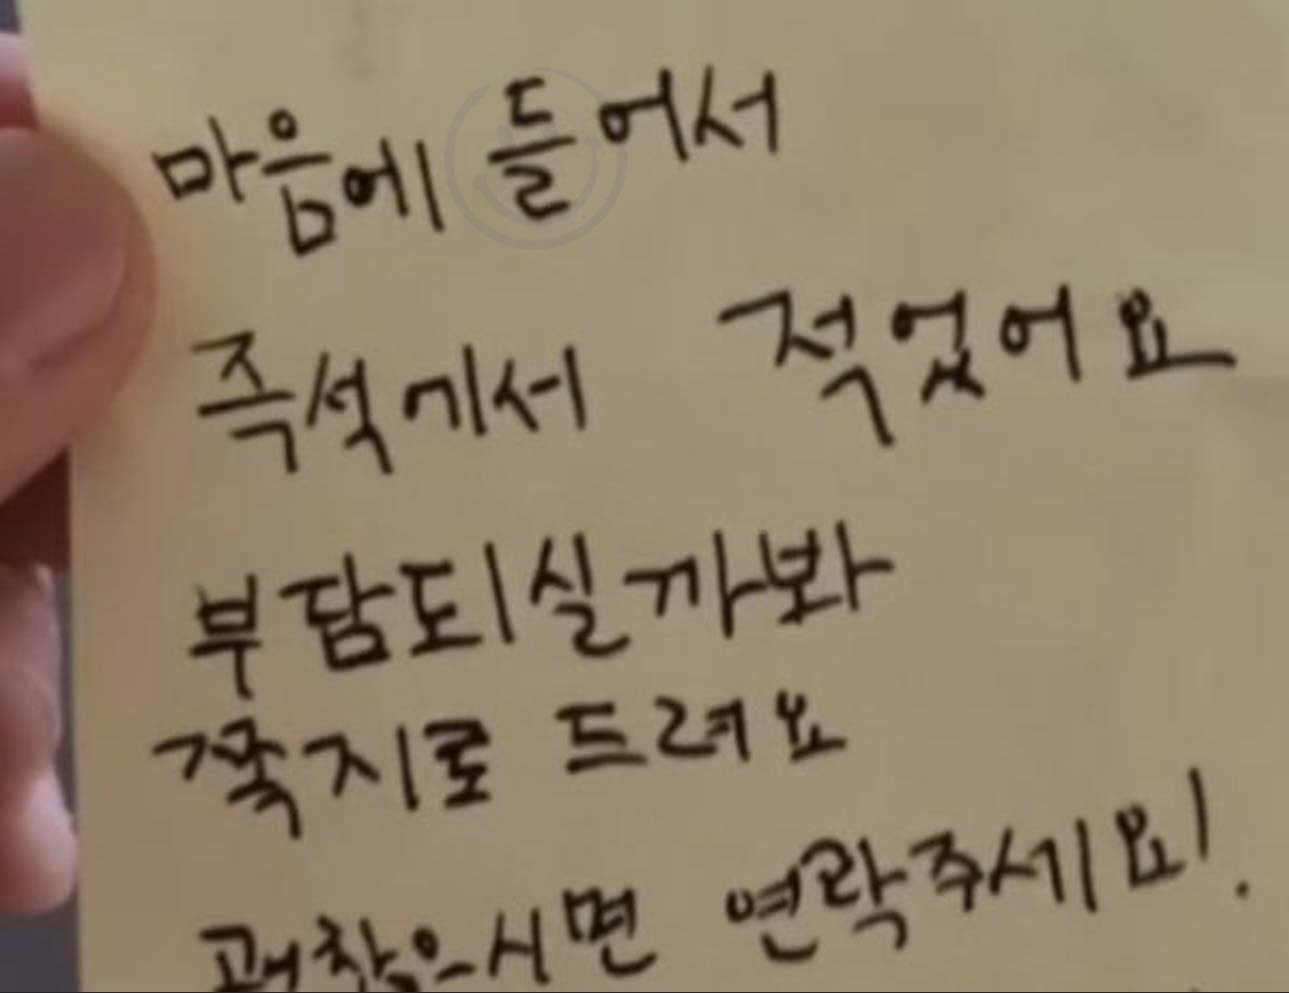 마음에 들어서
즉석에서 적었어요
부담되실까봐
쪽지로 드려요
괜찮으시면 연락주세요!